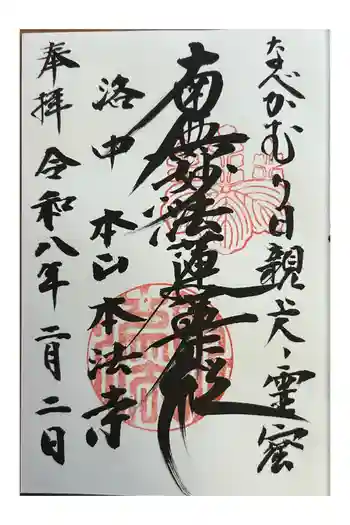 なべかむり日親大上人霊窟
南無妙法蓮華経
洛中 本山 本法寺
奉拝 令和八年二月二日